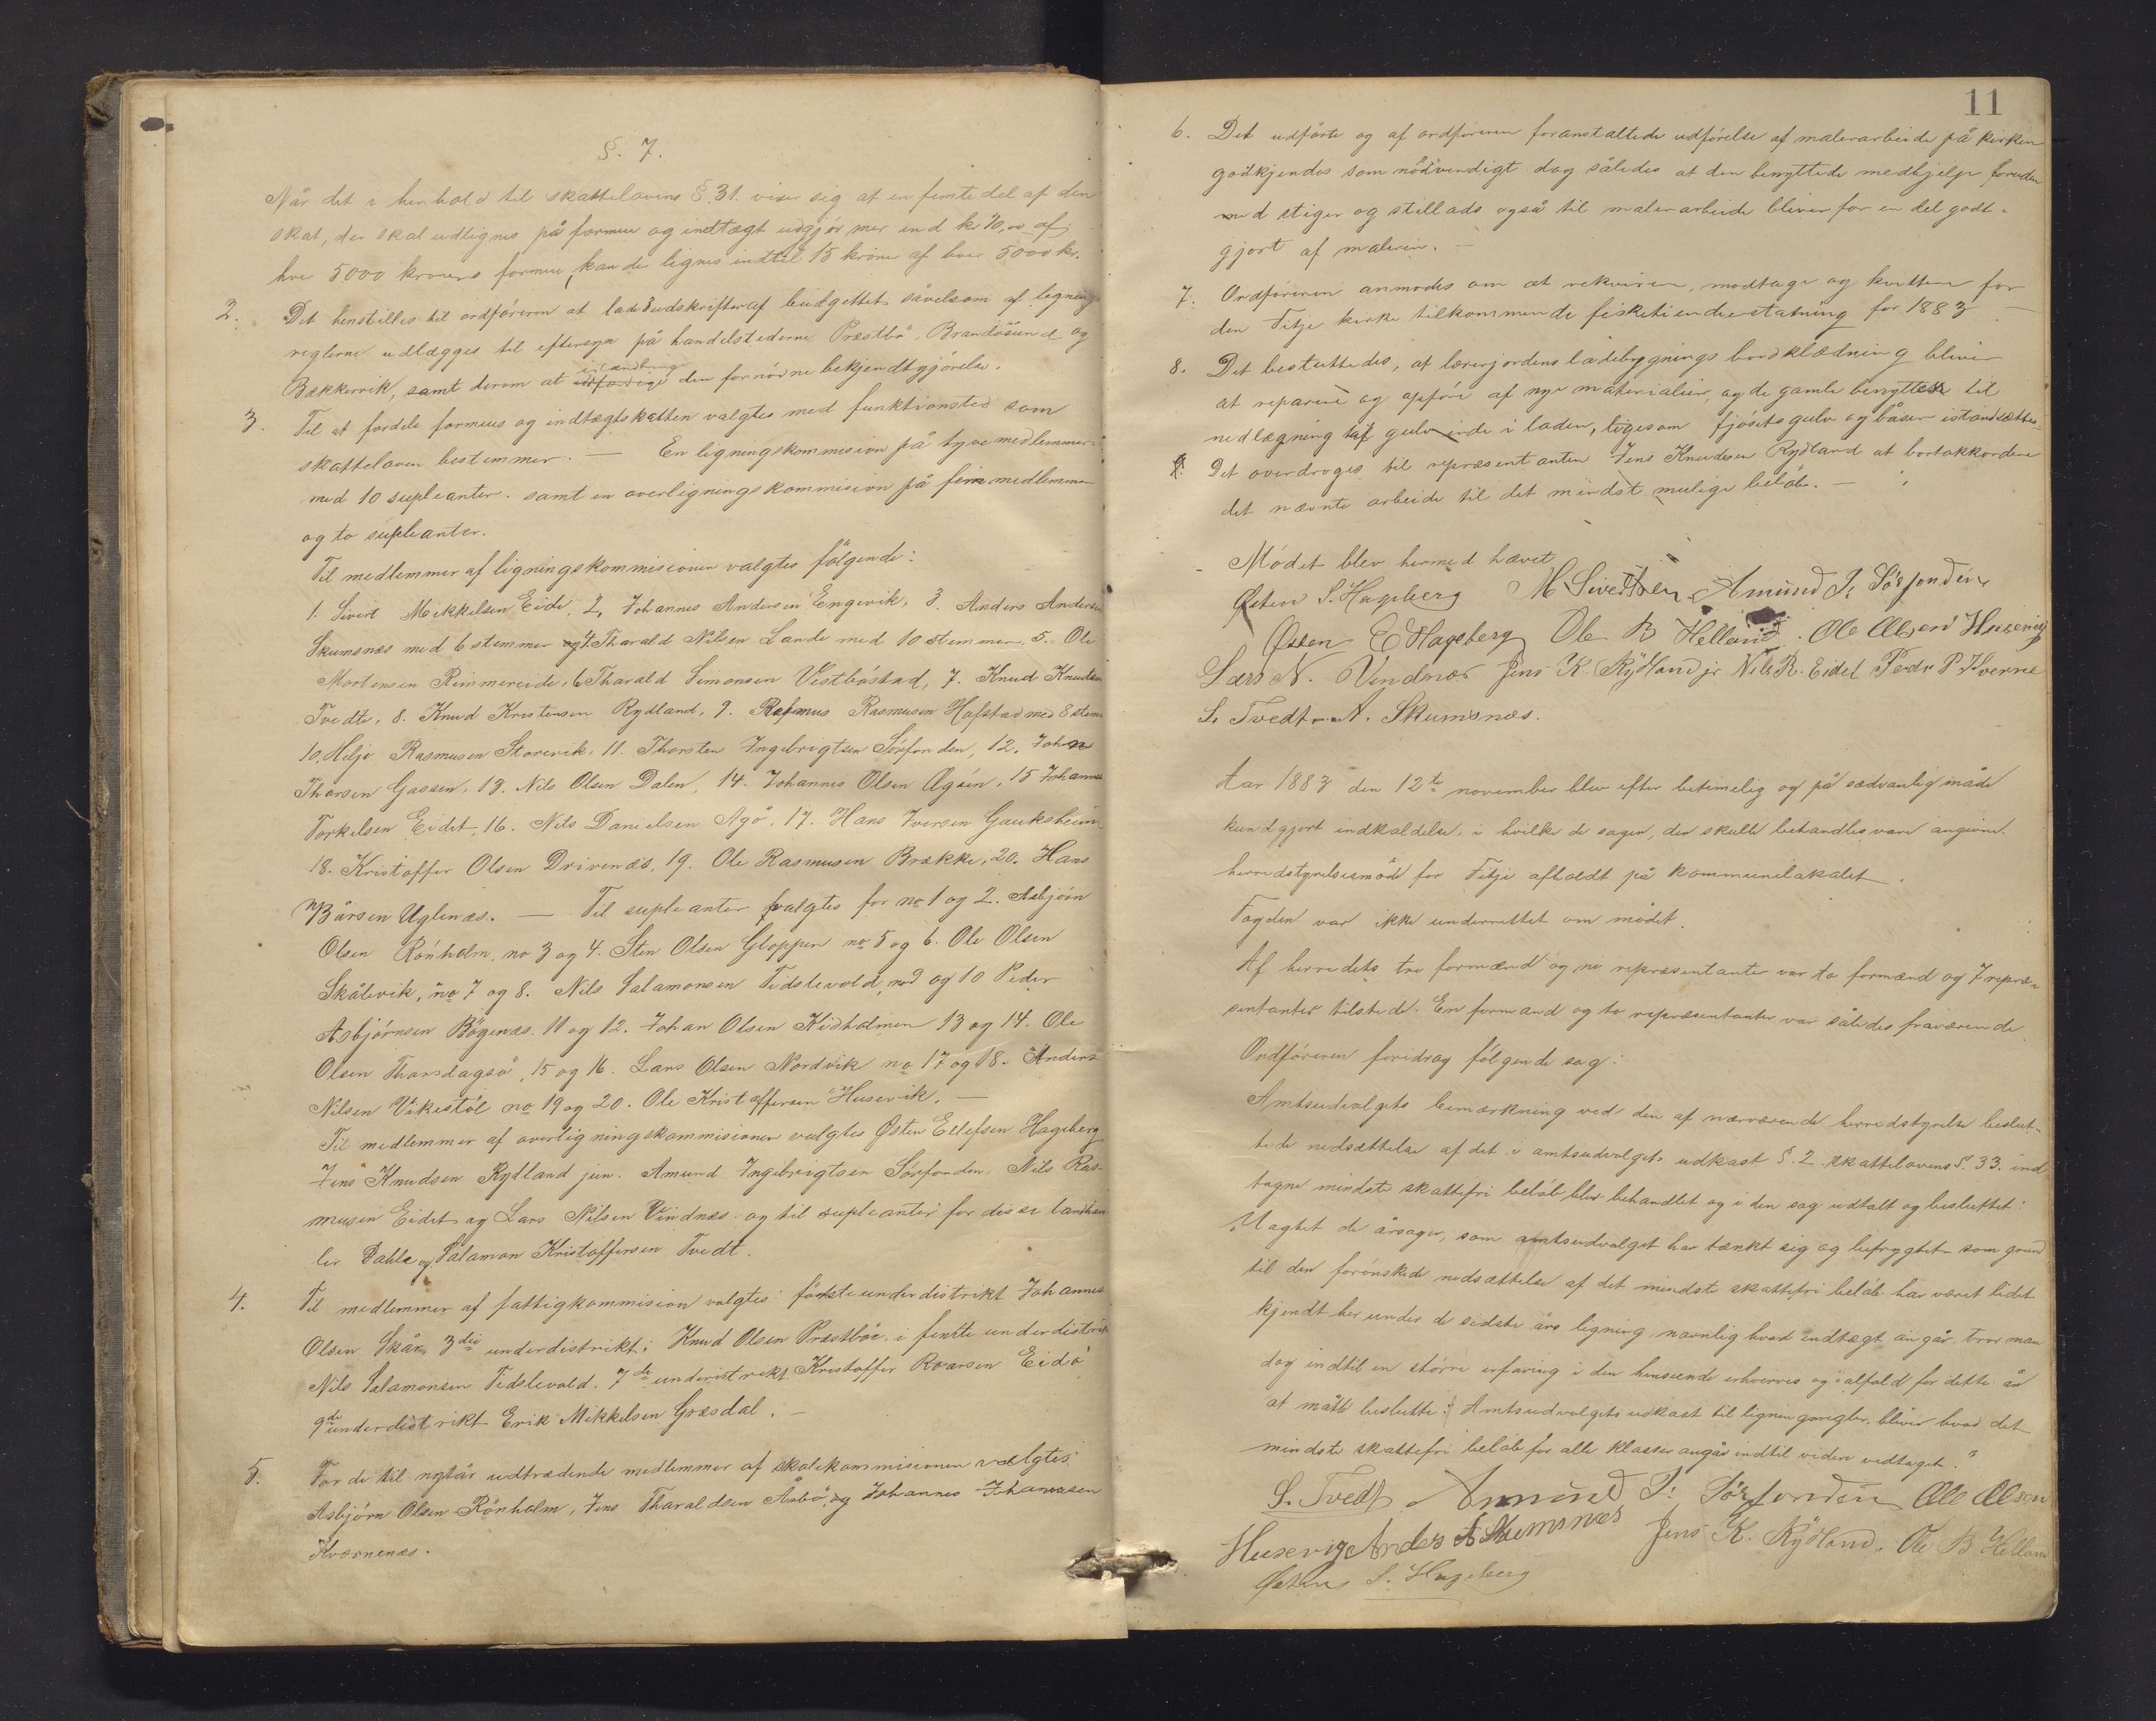 §. 7.
Når det i henhold til skattelovens §. 31. viser sig at en femtedel af den
skat, der skal udlignes på formue og indtægt udgjør mer end kr 10,00 af
hver 5000 kroners formue, kan der lignes indtil 15 kroner af hver 5000 kr.
2. Det henstilles til ordføreren at lade 3 udskrifter af budgettet såvelsom af lignings
reglerne udlægges til eftersyn på handelstederne Præstbø, Brandøsund og
Bækkervik, samt derom at den fornødne bekjendtgjørelse.
3. Til at fordele formues og indtægtskatten valgtes med funktionsted som
skatteloven bestemmer. — En ligningskommision på tyve medlemmer
med 10 supleanter. samt en overligningskommision på fem medlemmer
og to supleanter.
Til medlemmer af ligningskommisionen valgtes følgende:
1. Sivert Mekkelsen Eide, 2, Johannes Andersen Engevik, 3. Anders Andersen
Skumsnæs med 6 stemmer og 4. Tharald Nilsen Lande med 10 stemmer, 5. Ole
Mortensen Rimmereide, 6 Tharald Simonsen Vestbøstad, 7. Knud Knudsen
Tvedte, 8. Knud Kristensen Rydland, 9. Rasmus Rasmusen Hafstad med 8 stem
10. Helje Rasmusen Storevik, 11. Thorsten Ingebrigtsen Sørfonden, 12. Johan
Thorsen Gaasen, 13. Nils Olsen Dalen, 14. Johannes Olsen Øgsen, 15 Johannes
Torkelsen Eidet, 16. Nils Danielsen Agø, 17. Hans Iversen Gauksheim
18. Kristoffer Olsen Drivenæs, 19. Ole Rasmusen Brække, 20. Hans
Bårsen Uglenæs. — Til supleanter valgtes for no 1 og 2. Asbjørn
Olsen Rønholm, no 3 og 4. Sten Olsen Gloppen no 5 og 6. Ole Olsen
Skålevik, no 7 og 8. Nils Salamonsen Tidslevold, no 9 og 10 Peder
Asbjørnsen Bøgenæs. 11 og 12. Johan Olsen Kidholmen 13 og 14. Ole
Olsen Thorsdagsø, 15 og 16. Lars Olsen Nordvik no 17 og 18. Anders
Nilsen Vikestøl no 19 og 20. Ole Kristoffersen Husevik. —
Til medlemmer af overligningskommisionen valgtes Østen Ellefsen Hageberg
Jens Knudsen Rydland jun. Amund Ingebrigtsen Sørfonden, Nils Ras-
musen Eidet og Lars Nilsen Vindnæs. og til supleanter for disse landhan
ler Dahle og Salamon Kristoffersen Tvedt.
4. Til medlemmer af fattigkommision valgtes: første underdistrikt Johannes
Olsen Skår, 3die underdistrikt: Knud Olsen Præstbø, i femte underdistrikt
Nils Salamonsen Tidslevold. 7de underistrikt Kristoffer Roarsen Eidø
9de underdistrikt Erik Mikkelsen Græsdal. —
5. For de til nytår udtrædende medlemmer af skolekommisionen valgtes:
Asbjørn Olsen Rønholm, Jens Tharaldsen Årbø, og Johannes Johannesen
Kværnenæs.
11
6. Det udførte og af ordføreren foranstaltede udførelse af malerarbeide på kirken
godkjendes som nødvendigt dog således at den benyttede medhjelp foruden
med stiger og stillads også til malerarbeide bliver for en del godt-
gjort af maleren. —
7. Ordføreren anmodes om at rekvirere, modtage og kvittere for
den Fitje kirke tilkommende fisketiendeerstatning for 1883 —
8. Det besluttedes, at lærerjordens ladebygnings bordklædning bliver
at reparere og opføre af nye materialier, og de gamle benyttes til
nedlægning af gulv inde i laden, ligesom fjøsets gulv og båser istandsættes.
9. Det overdroges til repræsentanten Jens Knudsen Rydland at bortakkordere
det nævnte arbeide til det mindst mulige beløb. —
Mødet blev hermed hævet
Østen S. Hageberg M Sivertsen Amund I. Sørfonden
Østen E Hageberg Ole B Helland. Ole Olsen Husevig
Lars N. Vindnæs Jens K. Rydland jr Nils R. Eidet Peder P. Hverne
S. Tvedt A. Skumsnæs.
Aar 1883 den 12te november blev efter betimelig og på sædvanlig måde
kundgjort indkaldelse, i hvilke de sager, der skulle behandles var angivne,
herredstyrelsesmøde for Fitje afholdt på kommunelokalet.
Fogden var ikke underrettet om mødet.
Af herredets tre formænd og ni repræsentanter var to formænd og 7 repræ-
sentanter tilstede. En formand og to repræsentanter var således fraværende
Ordføreren foredrog følgende sag:
Amtsudvalgets bemærkning ved den af nærværende herredstyrelse beslut-
tede nedsættelse af det i amtsudvalgets udkast §. 2 skattelovens §. 33. ind
tagne mindste skattefri beløb blev behandlet og i den sag udtalt og besluttet:
Uagtet de årsager, som amtsudvalget har tænkt sig og befrygtet som grund
til den forønskede nedsættelse af det mindste skattefri beløb har været lidet
kjendt her under de sidste års ligning, navnlig hvad indtægt angår, tror man
dog indtil en større erfaring i den henseende erhverves og ialfald for dette år
at måtte beslutte: Amtsudvalgets udkast til ligningsregler, bliver hvad det
mindste skattefri beløb for alle klasser angår indtil videre vedtaget."
S. Tvedt Amund I. Sørfonden Ole Olsen
Husevig Anders A Skumsnæs Jens K. Rydland. Ole B Helland
Østen S. Hageberg